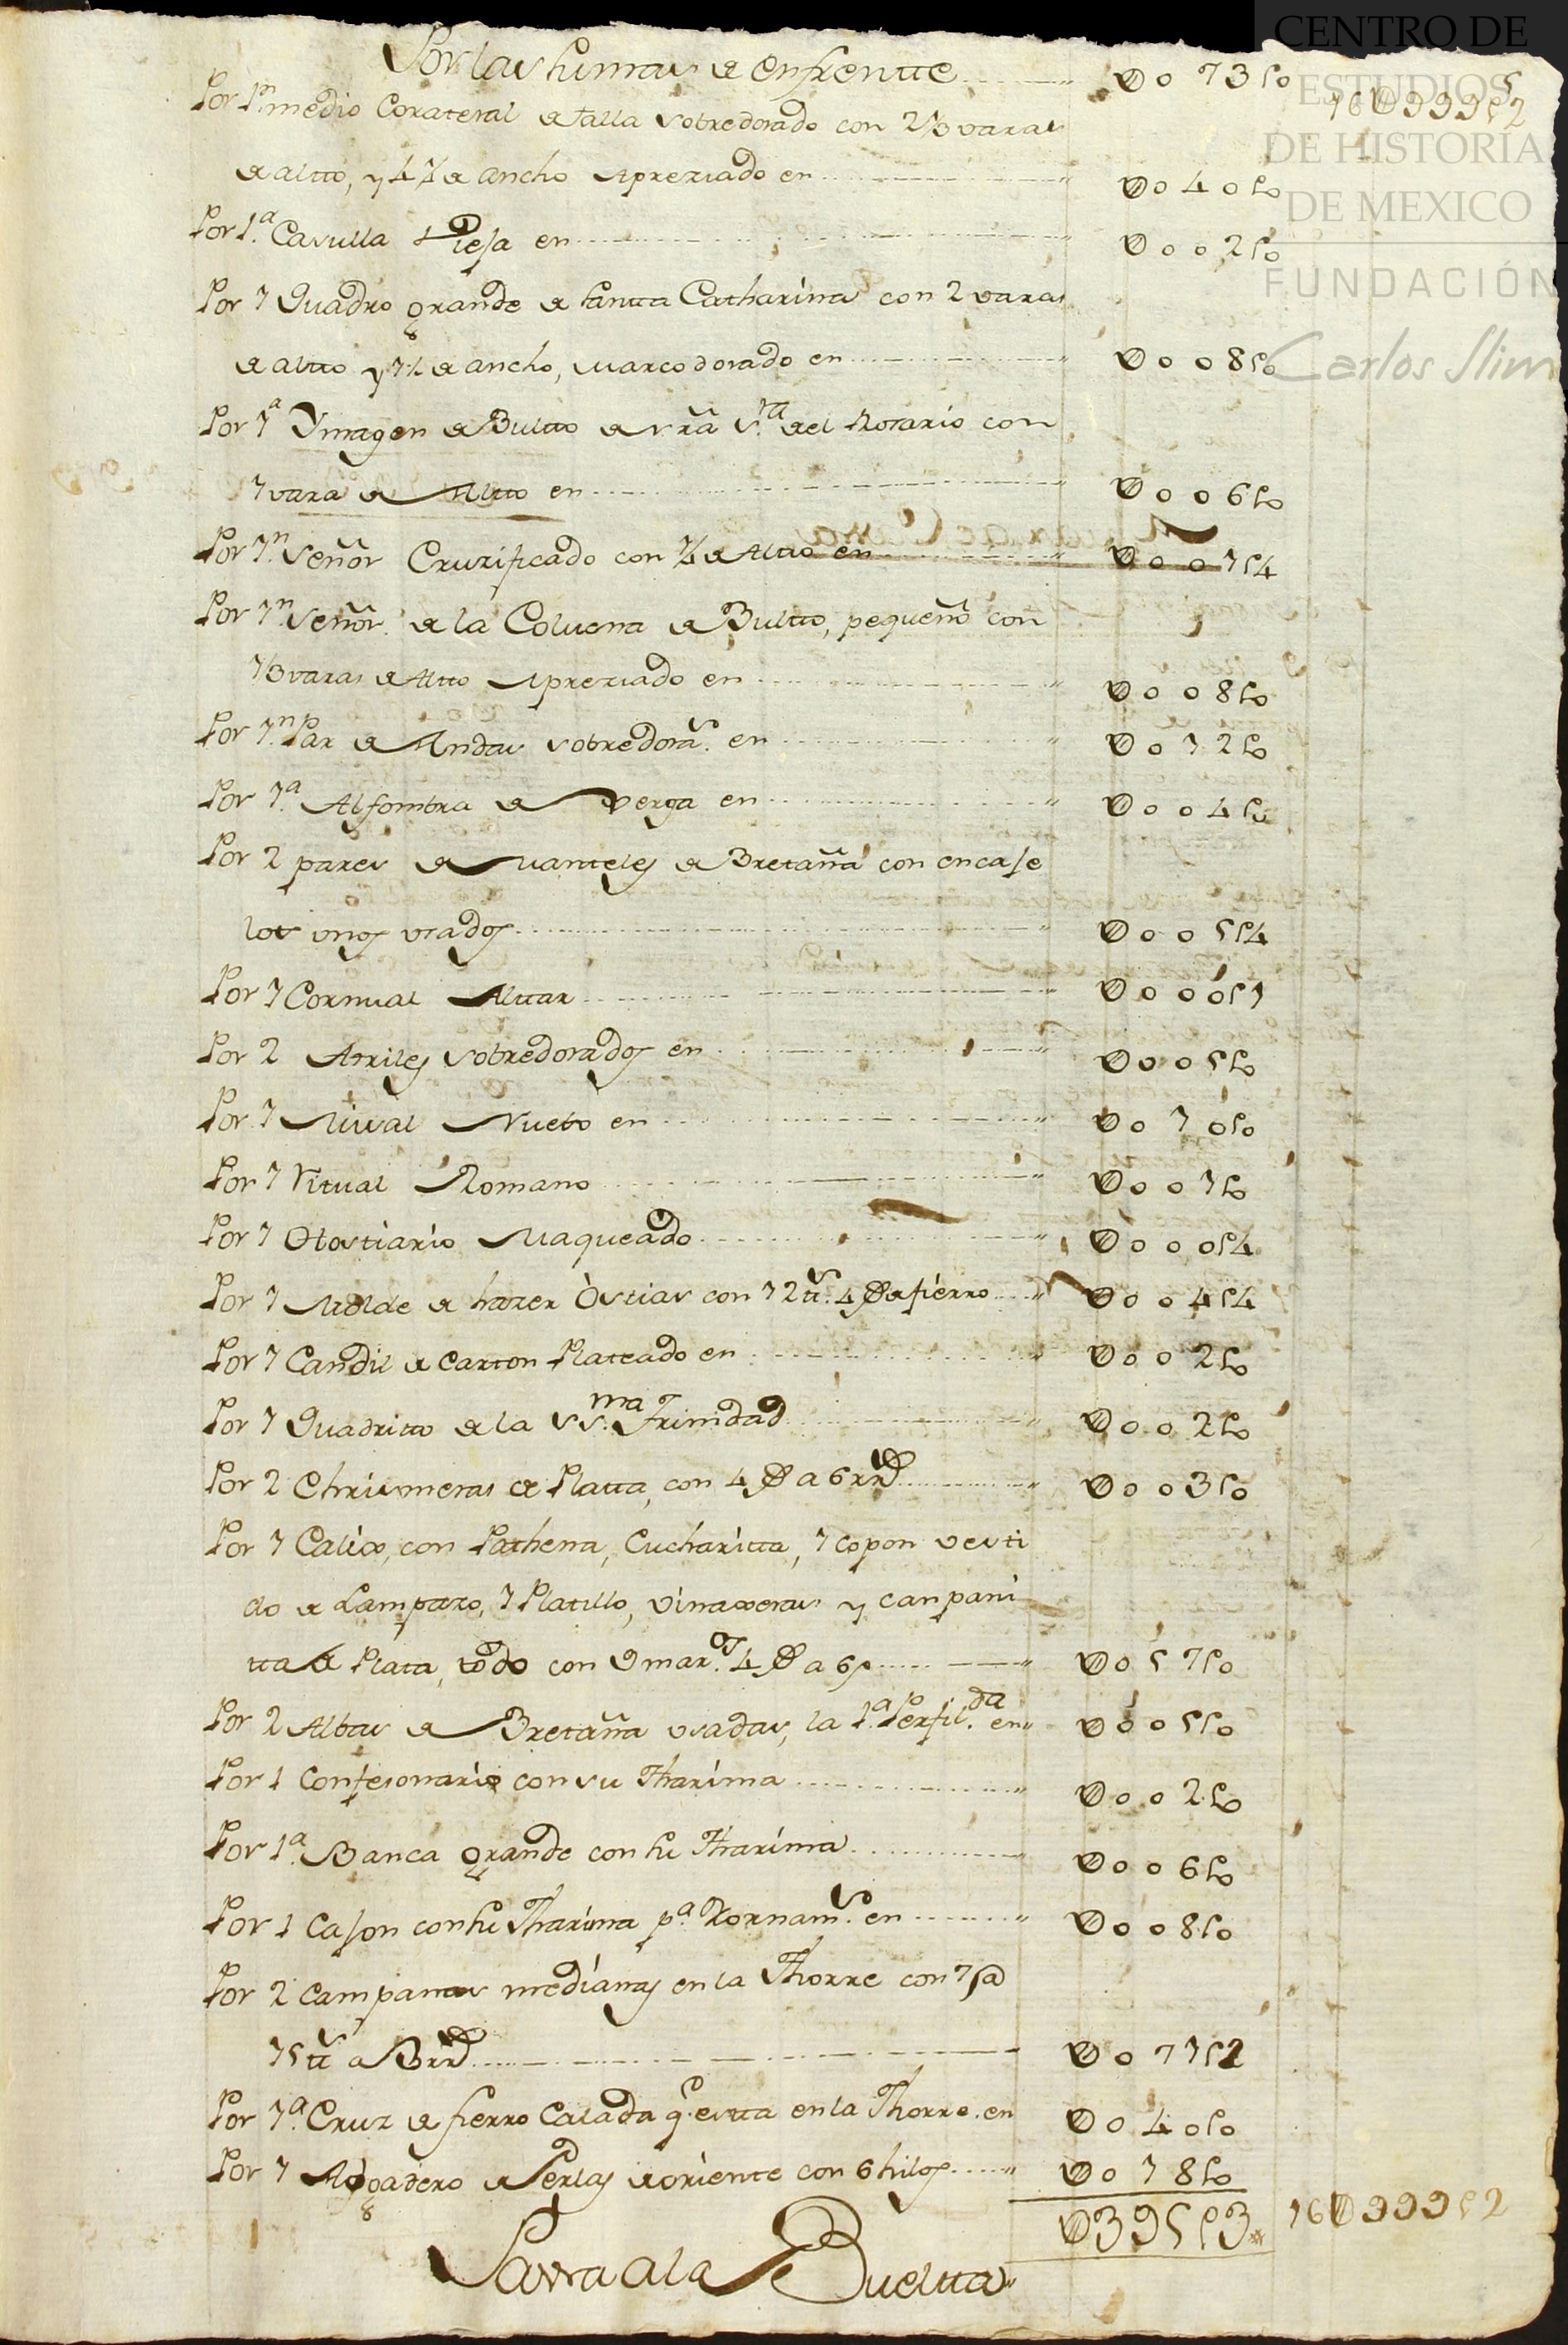 CENTRO DE
ESTUDIOS
DE HISTORIA
DE MEXICO
FUNDACIÓN
Carlos Slim
Por las sumas de enfrentte U073p0 16U999p2
Por 1n medio Corateral de talla sobredorado con 2 1/3 varas
de altto, y 4 1/4 de ancho Apreziado en U040p0
Por 1a. Casulla Viesa en U002p0
Por 1 Quadro grande de santta Catharina con 2 varas
de altto y 1 1/2 de ancho, Marco dorado en U008p0
Por 1a Ymagen de Bultto de nrã Sra del Rosario con
1 vara de Altto en U006p0
Por 1n. Señor Cruzificado con 3/4 de Altto en U001p4
Por 1n. Señor de la Coluna de Bultto, pequeño con
1/3 varas de Altto Apreziado en U008p0
Por 1n. Par de Andas sobredoras. en U012p0
Por 1a. Alfombra de Xerga en U004p0
Por 2 pares de Manteles de Bretaña con encaje
los unos usados U005p4
Por 1 Cornual Alttar U000p1
Por 2 Atriles sobredorados en U005p0
Por 1 Misal Nuebo en U010p0
Por 1 Ritual Romano U001p0
Por 1 Ostiario Maqueado U000p4
Por 1 Molde de hazer Ostias con 12 tts. 4 @ de fierro U004p4
Por 1 Candil de carton Plateado en U002p0
Por 1 Quadritto de la SSma. Trinidad U002p0
Por 2 Chrismeras de Platta, con 4 @ a 6 rrs U003p0
Por 1 Calix, con Pathena, Cucharitta, 1 copon vesti
do de Lampazo, 1 Platillo, vinaxeras y canpani
tta de Plata, todo con 9 mars. 4 @ a 6p U057p0
Por 2 Albas de Bretaña usadas, la 1a. Perfilda. en U005p0
Por 1 Confesonario con su Tharima U002p0
Por 1a. Banca grande con su Tharima U006p0
Por 1 Cajon con su Tharima pa. Hornams. en U008p0
Por 2 Campanas medianas en la Thorre con 1p@
15 tts a 3 rrs U011p2
Por 1a. Cruz de fierro Calada q. estta en la Thorre. en U040p0
Por 1 Aogadero de Perlas de oriente con 6 hilos U018p0
U395p3 16U999p2
Passa a la Bueltta